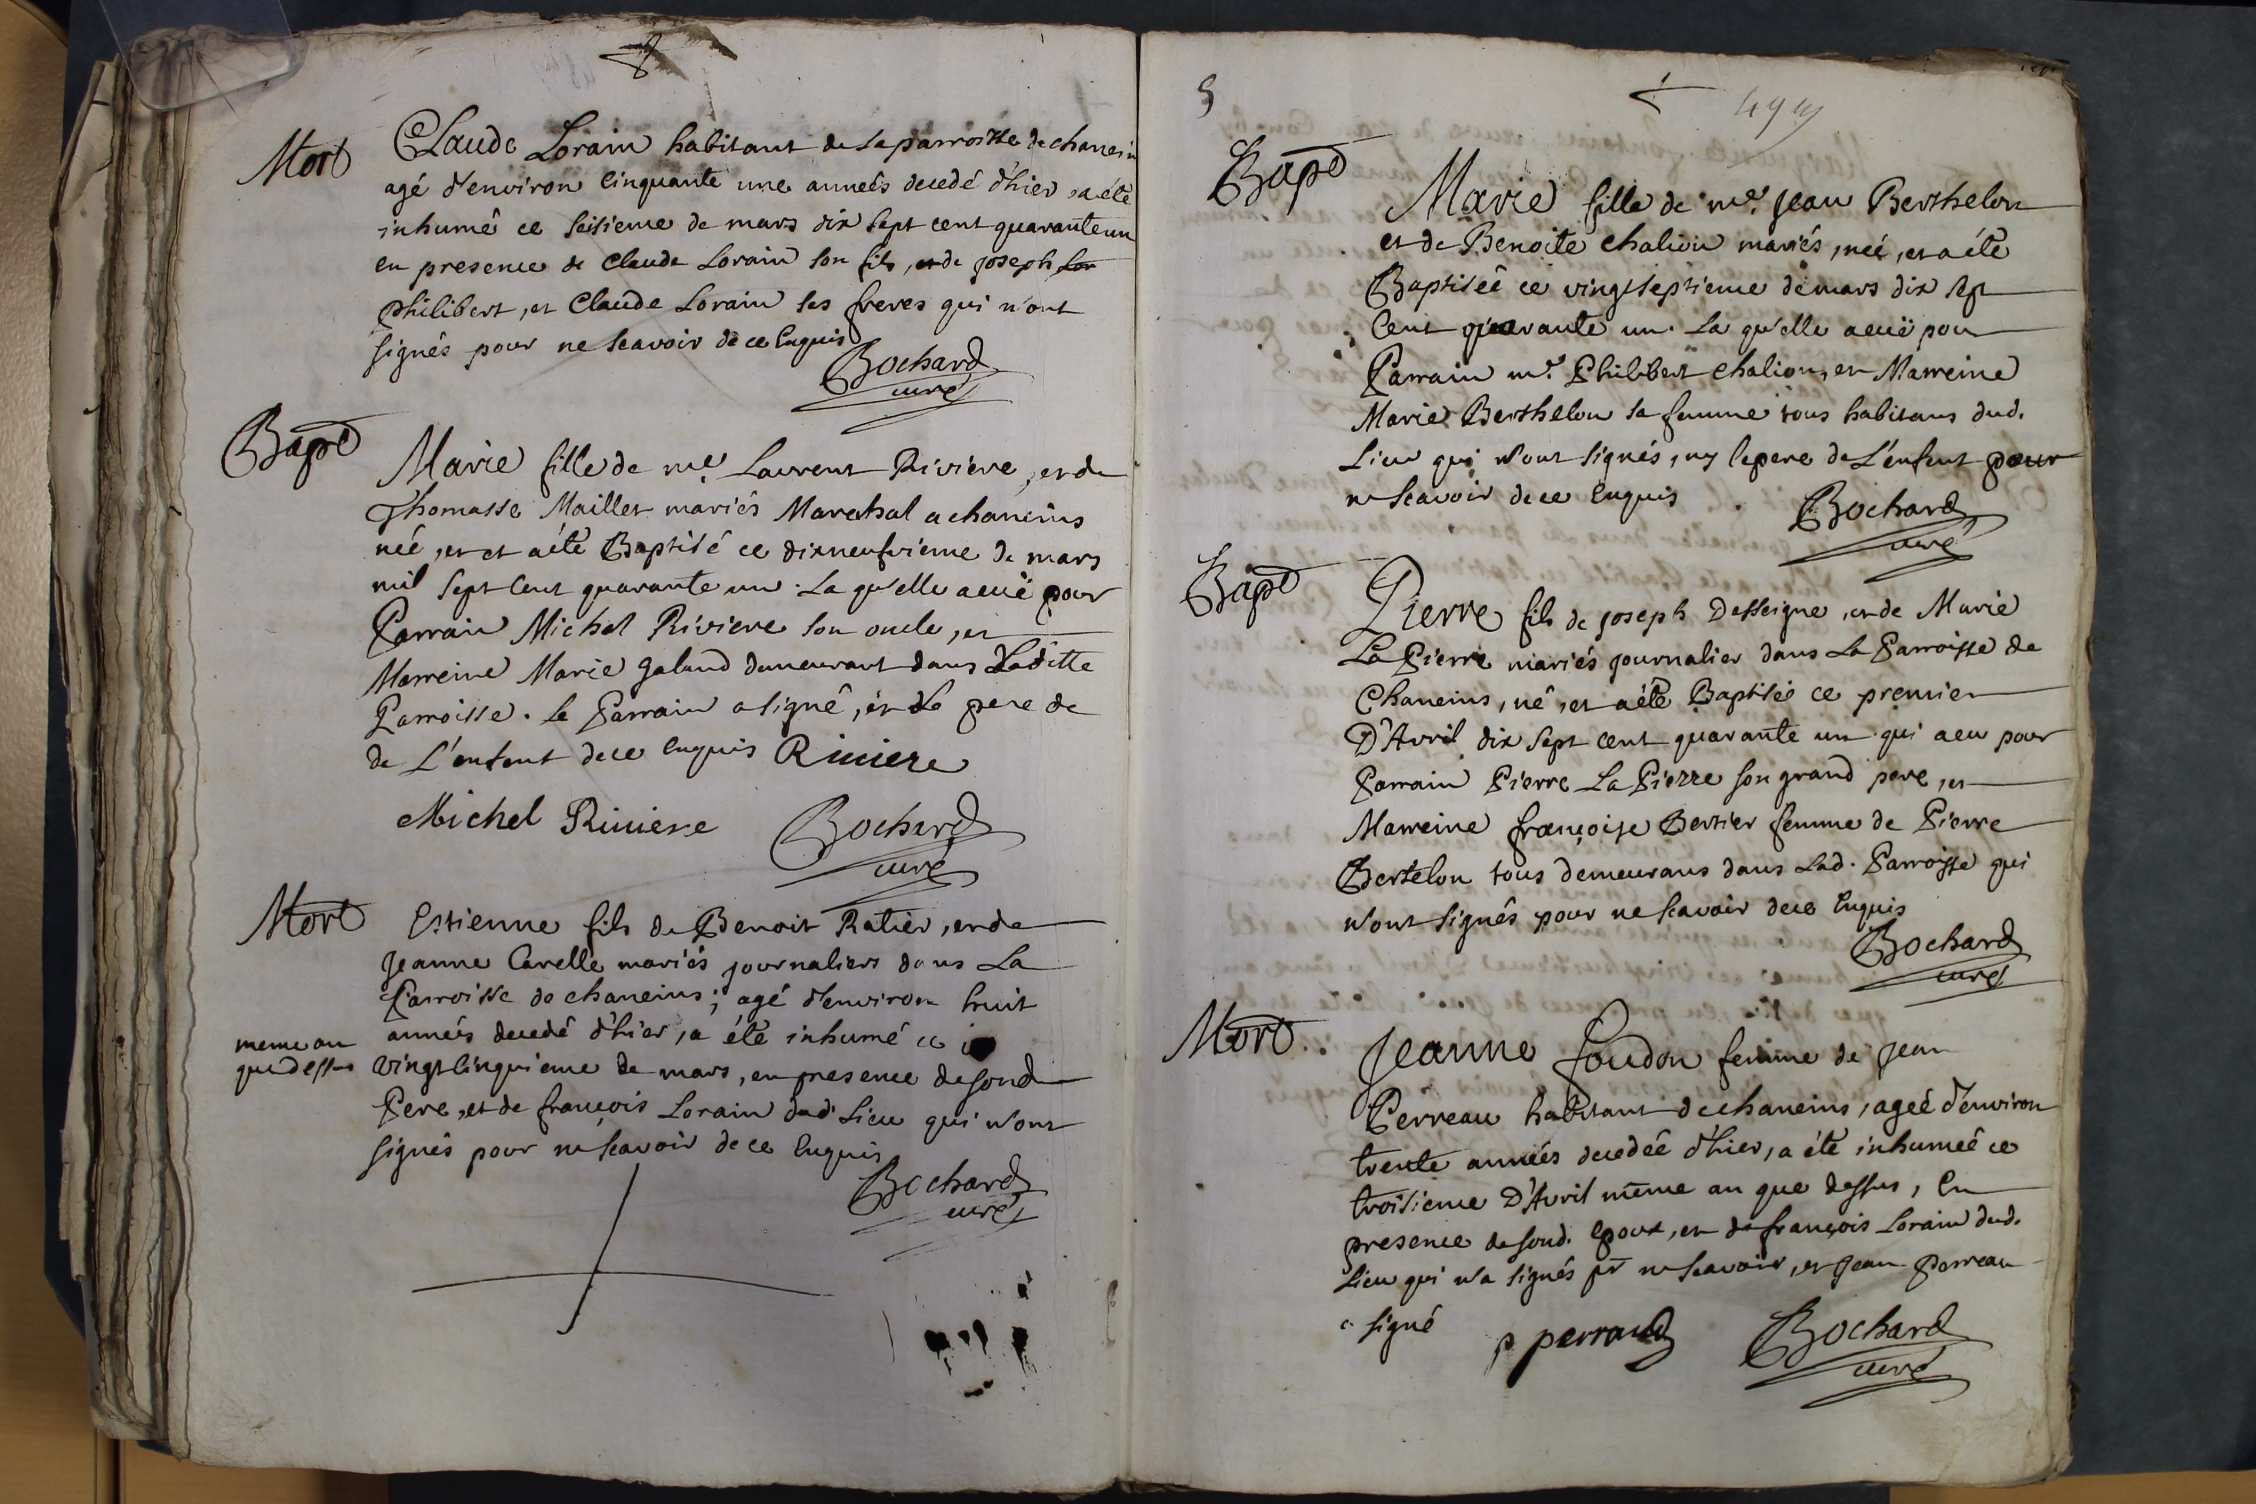 Mort
Claude Lorain habitant de la parroisse de chanein
agé d'environ Cinquante une années decedé d'hier, a été
inhumé ce seisieme de mars dix sept cent quarante un
en presence de Claude Lorain son fils, et de joseph Lor
philibert, et Claude Lorain ses freres qui n'ont
signés pour ne scavoir de ce Enquis
Bochard
curé
Bapt
Marie fille de me. Laurent Riviere, et de
Thomasse Maillet mariés Marechal a chaneins
née, et et a été Baptisé ce dixneufvieme de mars
mil sept Cent quarante un. La qu'elle a euë pour
Parrain Michel Riviere son oncle, et
Marreine Marie Galand demeurant dans Laditte
Parroisse. Le Parrain a signé, et Le pere de
de L'enfent de ce Enquis Riuiere
Michel Riuiere Bochard
curé
Mort
Estienne fils de Benoit Ratier, et de
Jeanne Carelle mariés journaliers dans La
Parroisse de chaneins; agé d'environ huit
années decedé d'hier, a été inhumé ce
meme an
que dessus
vingt Cinquieme de mars, en presence de soud
Pere, et de françois Lorain dud. Lieu qui n'ont
signés pour ne scavoir de ce Enquis
Bochard
curé
5
499
Bapt
Marie fille de me. Jean Berthelon
et de Benoite chalion mariés, née, et a été
Baptiseé ce vingt septieme de mars dix sept
Cent quarante un. La qu'elle a euë pour
Parrain me. Philibert chalion, et Marreine
Marie Berthelon sa femme tous habitans dud.
Lieu qui n'ont signés, ny le pere de L'enfent pour
ne scavoir de ce Enquis
Bochard
curé
Bapt
Pierre fils de joseph Desseigne, et de Marie
La Pierre mariés journalier dans La Parroisse de
Chaneins, né, et a été Baptisé ce premier
D'Avril dix sept cent quarante un qui a eu pour
Parrain Pierre La Pierre son grand pere, et
Marreine françoise Bertier femme de Pierre
Bertelon tous demeurans dans Lad. Parroisse qui
n'ont signés pour ne scavoir de ce Enquis
Bochard
curé
Mort
Jeanne foudon femme de Jean
Perreau habitant de chaneins, ageé d'environ
trente années decedéé d'hier, a été inhumeé ce
troisieme D'Avril meme an que dessus, En
presence de soud. Epoux, et de françois Lorain dud.
Lieu qui n'a signés pr ne scavoir, et Jean Perreau
a signé
p perraud Bochard
curé